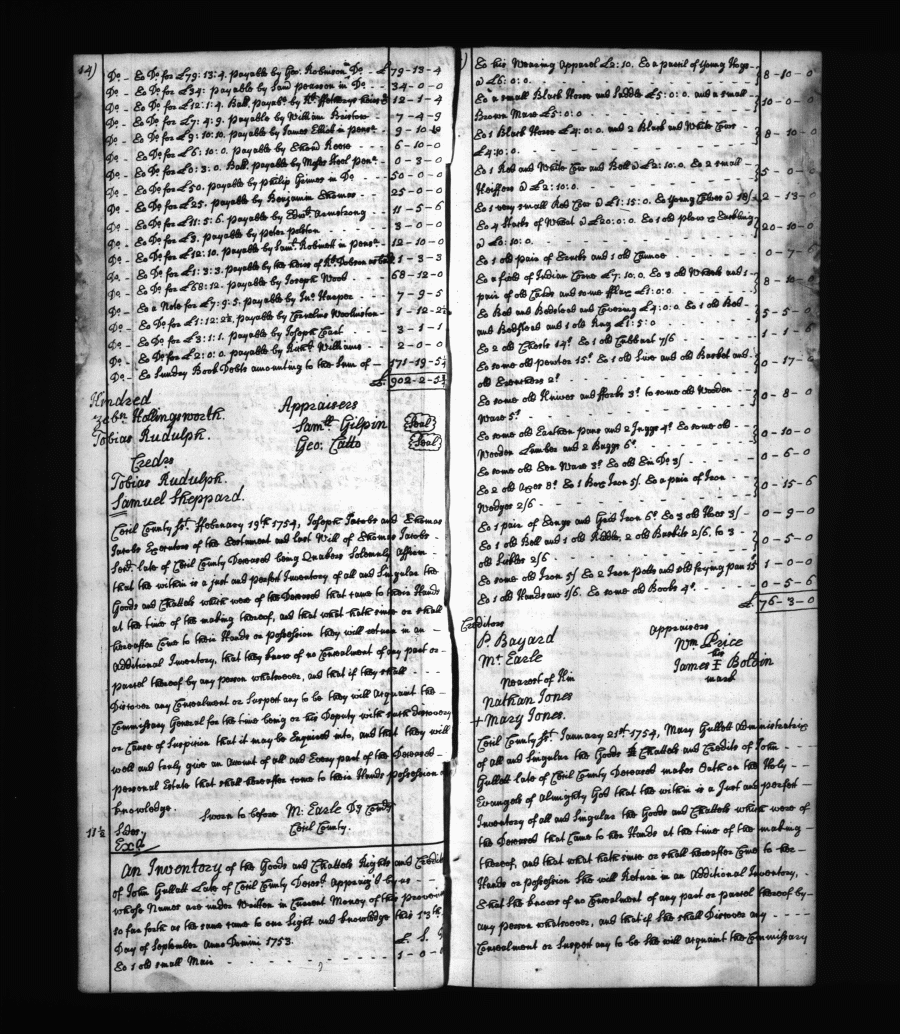 14)
Do - To Do for £79:13:4. payable by Geo. Robinson Do - £79-13-4
Do - To Do for £34: payable by Saml pearson in Do - 34-0-0
Do - To Do for £12:1:4. Ball. payable by heirs 12-1-4
Do - To Do for £7:4:9. payable by William Bristow - 7-4-9
Do - To Do for £9:10:10. payable by James in pensa. 9-10-10
Do - To Do for £6:10:0. payable by Edward Reese 6-10-0
Do - To Do for £0:3:0. Ball. payable by pena. - 0-3-0
Do - To Do for £50. payable by Philip in Do - 50-0-0
Do - To Do for £25. payable by Benjamin Thomas - 25-0-0
Do - To Do for £11:5:6. payable by Edwd. Armstrong 11-5-6
Do - To Do for £3. payable by peter - 3-0-0
Do - To Do for £12:10. payable by Saml. Robinett in pensa. - 12-10-0
Do - To Do for £1:3:3. payable by the heirs of 1-3-3
Do - To Do for £68:12. payable by Joseph Wood 68-12-0
Do - To a Note for £7:9:5. payable by Jno. Harper 7-9-5
Do - To Do for £1:12:2½. payable by Cornelius Woolinston - 1-12-2½
Do - To Do for £3:1:1. payable by Joseph 3-1-1
Do - To Do for £2:0:0. payable by Richd. Williams 2-0-0
Do - To Sunday Book Debts amounting to the Sum of - 171-19-5½
£ 902-2-5½
Kindred
Zebn Hollingsworth.
Tobias Rudulph.
Appraisers
Samll. Gilpin (Seal)
Geo. Catto (Seal)
Credrs
Tobias Rudulph.
Samuel Sheppard.
Cecil County Ss. February 19th 1754, Joseph Jacobs and Thomas
Jacobs Executors of the Testament and last Will of Thomas Jacobs -
Late of Cecil County Deceased being Quakers Solemnly Affirm -
that the within is a just and perfect Inventory of all and Singular the
Goods and Chattels which were of the Deceased that came to their Hands
at the time of the making thereof, and that what hath since or shall
hereafter Come to their Hands or possession they will return in an -
Additional Inventory, that they know of no Concealment of any part or -
parcel thereof by any person whatsoever, and that if they shall -
Discover any Concealment or Suspect any to be they will acquaint the -
Commissary General for the time being or his Deputy with such discovery
or Cause of Suspition that it may be Enquired into, and that they will
well and truly give an Account of all and Every part of the Deceased -
personal Estate that shall hereafter come to their Hands possession
knowledge.
Sworn to before M. Earle Dy Comsy
Cecil County.
11½ Sides
Exd
An Inventory of the Goods and Chattels Rights and Credits
of John Gullett Late of Cecil County Decest. Appraiz'd by us -
whose Names are under Written in Current Money of this province
so far forth as the same came to our Sight and knowledge this 13th.
Day of September Anno Domini 1753. £. S.
To 1 old small Mair 1-0-0
To his Wearing Apparel £2:10. To a parcel of young Hogs -
@ £6:0:0. 8-10-0
To a small Black Horse and Saddle £5:0:0. and a small -
Brown Mare £5:0:0 10-0-0
To 1 Black Horse £4:0:0. and 2 Black and White Cows
£4:10:0. 8-10-0
To 1 Red and White Cow and Bell @ £2:10:0. To 2 small -
Heiffers @ £2:10:0. 5-0-0
To 1 very small Red Cow @ £1:15:0. To Young Calves @ 18/ 2-13-0
To 4 Stacks of Wheat @ £20:0:0. To 1 old plow &
@ £0:10:0. 20-10-0
To 1 old pair of and 1 old Cannoe 0-7-
To a field of Indian Corne £7:10:0. To 3 old Wheels and 1 -
pair of old Cards and some fflax £1:0:0. 8-10-
To Bed and Bedstead and Covering £4:0:0. To 1 old Bed -
and Bedstead and 1 old Rug £1:5:0 5-5-0
To 2 old Chests 14s. To 1 old Cubbart 7/6 1-1-6
To some old pewter 15s. To 1 old Sive and old Basket and -
old 2s. 0-17-
To some old Knives and fforks 3s. to some old Wooden -
Ware 5s. 0-8-0
To some old Earthen pans and 2 Juggs 4s. To some old -
Wooden Lumber and 2 Baggs 6s. 0-10-0
To some old Ware 3s. To old Tin Do. 3/ 0-6-0
To 2 old Axes 8s. To 1 Box Iron 5/. To a pair of Iron -
Wedges 2/6 0-15-6
To 1 pair of Tongs and Grid Iron 6s. To 3 old Hoes 3/ - 0-9-0
To 1 old Bell and 1 old Riddle, 2 old Baskits 2/6, to 3 -
old Sickles 2/6. 0-5-0
To some old Iron 5/ To 2 Iron potts and old frying pan 15s. 1-0-0
To 1 old Handsaw 1/6. To some old Books 4s. 0-5-6
£ 76-3-0
Creditors
P. Bayard
M. Earle
Nearest of Kin
Nathan Jones
+ Mary Jones.
appraisers
Wm Price
his
James I Boldin
mark
Cecil County Ss. January 21st 1754, Mary Gullett Administratrix
of all and Singular the Goods & Chattels and Credits of John - - -
Gullett late of Cecil County Deceased makes Oath on the Holy - -
Evangels of Almighty God that the within is a Just and perfect -
Inventory of all and Singular the Goods and Chattels which were of
the Deceased that Came to her Hands at the time of the making -
thereof, and that what hath since or shall hereafter Come to her -
Hands or possession She will Return in an Additional Inventory, -
that She knows of no Concealment of any part or parcel thereof by -
any person whatsoever, and that if She shall Discover any - - - -
Concealment or Suspect any to be She will acquaint the Commissary